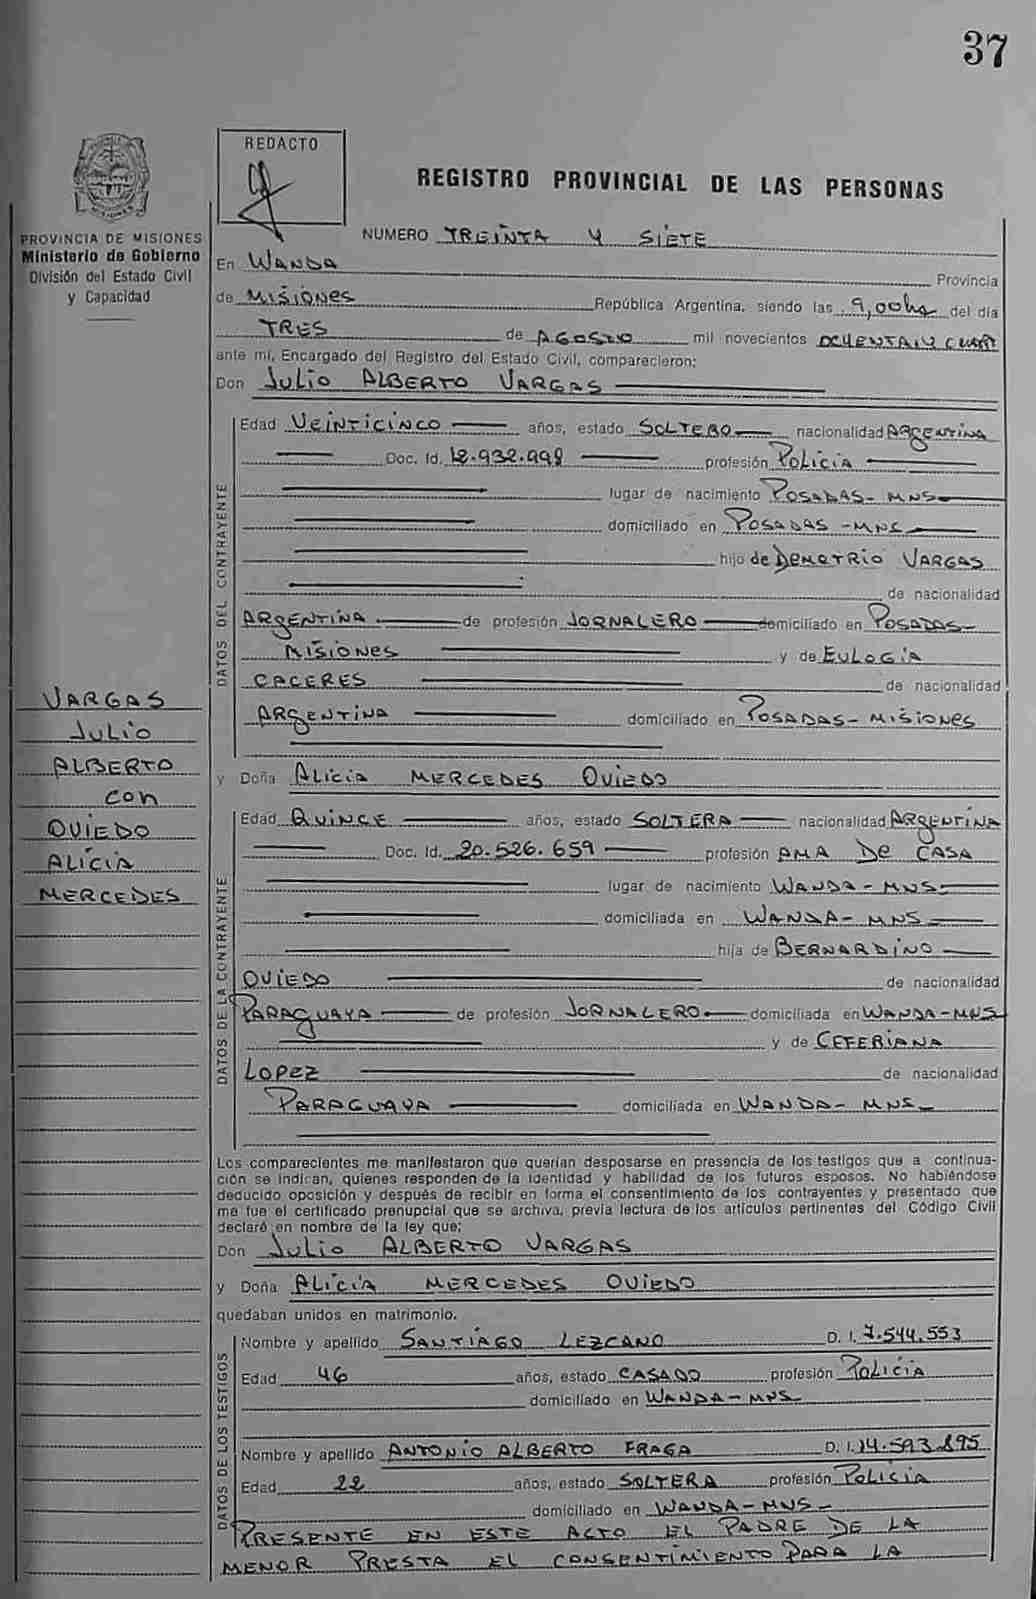 37
REDACTO
REGISTRO PROVINCIAL DE LAS PERSONAS
PROVINCIA DE MISIONES
Ministerio de Gobierno
División del Estado Civil
y Capacidad
NUMERO TREINTA Y SIETE
En WANDA Provincia
de MISIONES República Argentina, siendo las 9,00hs del día
TRES de AGOSTO mil novecientos OCHENTA Y CUATR
ante mí, Encargado del Registro del Estado Civil, comparecieron:
Don JULIO ALBERTO VARGAS
DATOS DEL CONTRAYENTE
Edad VEINTICINCO años, estado SOLTERO nacionalidad ARGENTINA
Doc. Id. 12.932.998 profesión POLICIA
lugar de nacimiento POSADAS- MNS-
domiciliado en POSADAS -MNS
hijo de DEMETRIO VARGAS
de nacionalidad
ARGENTINA de profesión JORNALERO domiciliado en POSADAS-
MISIONES y de EULOGIA
CACERES de nacionalidad
ARGENTINA domiciliado en POSADAS- MISIONES
VARGAS
JULIO
ALBERTO
CON
OVIEDO
ALICIA
MERCEDES
y Doña ALICIA MERCEDES OVIEDO
DATOS DE LA CONTRAYENTE
Edad QUINCE años, estado SOLTERA nacionalidad ARGENTINA
Doc. Id. 20.526.659 profesión AMA DE CASA
lugar de nacimiento WANDA- MNS-
domiciliada en WANDA- MNS
hija de BERNARDINO
OVIEDO de nacionalidad
PARAGUAYA de profesión JORNALERO domiciliada en WANDA-MNS
y de CEFERIANA
LOPEZ de nacionalidad
PARAGUAYA domiciliada en WANDA- MNS-
Los comparecientes me manifestaron que querían desposarse en presencia de los testigos que a continua-
ción se indican, quienes responden de la identidad y habilidad de los futuros esposos. No habiéndose
deducido oposición y después de recibir en forma el consentimiento de los contrayentes y presentado que
me fue el certificado prenupcial que se archiva, previa lectura de los artículos pertinentes del Código Civil
declaré en nombre de la ley que:
Don JULIO ALBERTO VARGAS
y Doña ALICIA MERCEDES OVIEDO
quedaban unidos en matrimonio.
DATOS DE LOS TESTIGOS
Nombre y apellido SANTIAGO LEZCANO D. I. 7.544.553
Edad 46 años, estado CASADO profesión POLICIA
domiciliado en WANDA-MNS
Nombre y apellido ANTONIO ALBERTO FRAGA D. I. 14.593.895
Edad 22 años, estado SOLTERA profesión POLICIA
domiciliado en WANDA-MNS-
PRESENTE EN ESTE ACTO EL PADRE DE LA
MENOR PRESTA EL CONSENTIMIENTO PARA LA